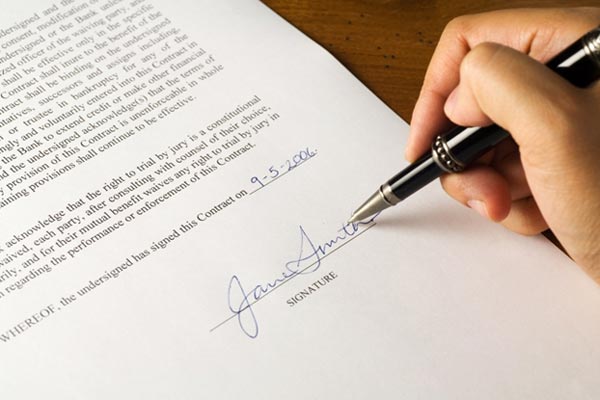 undersigned and
consent, modification
undersigned or the Bank unless
officer of the waiving party, and
shall be effective only in the specific
Contract shall inure to the benefit of the
shall be binding on the undersigned
successors and assigns including,
or trustee in bankruptcy for any of the
and voluntarily entered into this Contract in
the Bank to extend credit or make other financial
the undersigned acknowledge(s) that the terms of
provision of this Contract is unenforceable in whole
provisions shall continue to be effective.
acknowledge that the right to trial by jury is a constitutional
waived, each party, after consulting with counsel of their choice,
and for their mutual benefit waives any right to trial by jury in
regarding the performance or enforcement of this Contract.
WHEREOF, the undersigned has signed this Contract on 9-5-2006.
Jane Smith
SIGNATURE